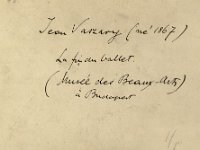 Jean Vaszary (né 1867)
La fin du ballet.
(Musée des Beaux-Arts)
à Budapest